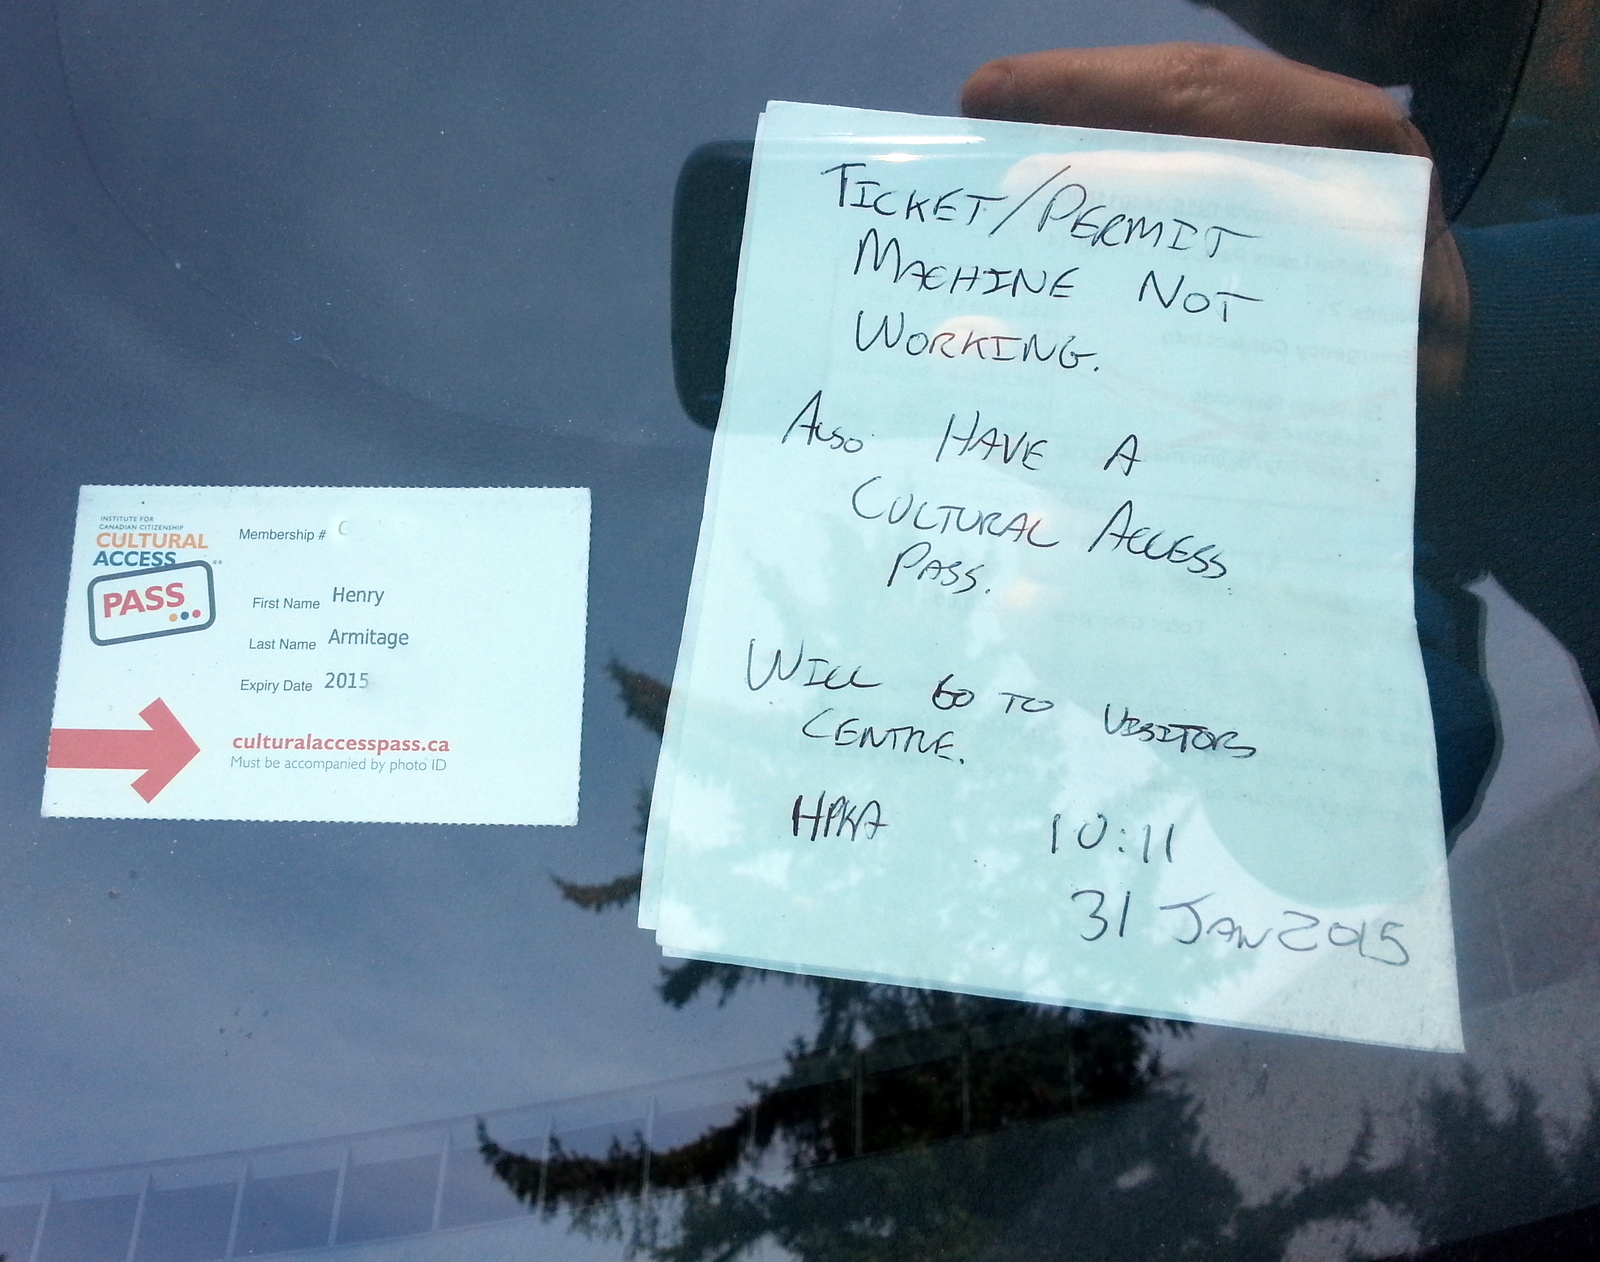 INSTITUTE FOR
CANADIAN CITIZENSHIP
CULTURAL
ACCESS
PASS
Membership # C
First Name Henry
Last Name Armitage
Expiry Date 2015
culturalaccesspass.ca
Must be accompanied by photo ID
TICKET/PERMIT
MACHINE NOT
WORKING.
ALSO HAVE A
CULTURAL ACCESS
PASS.
WILL GO TO VISITORS
CENTRE.
HPKA 10:11
31 JAN 2015